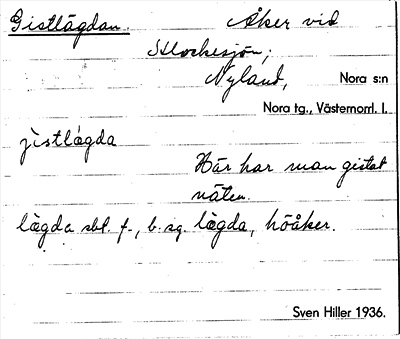 Gistlägdan. Åker vid
Klockesjön;
Nyland, Nora s:n
Nora tg., Västernorrl. l.
jìstlǻgda
Här har man gistat
näten.
lägda sbl. f., b. sg. lägda, höåker.
Sven Hiller 1936.